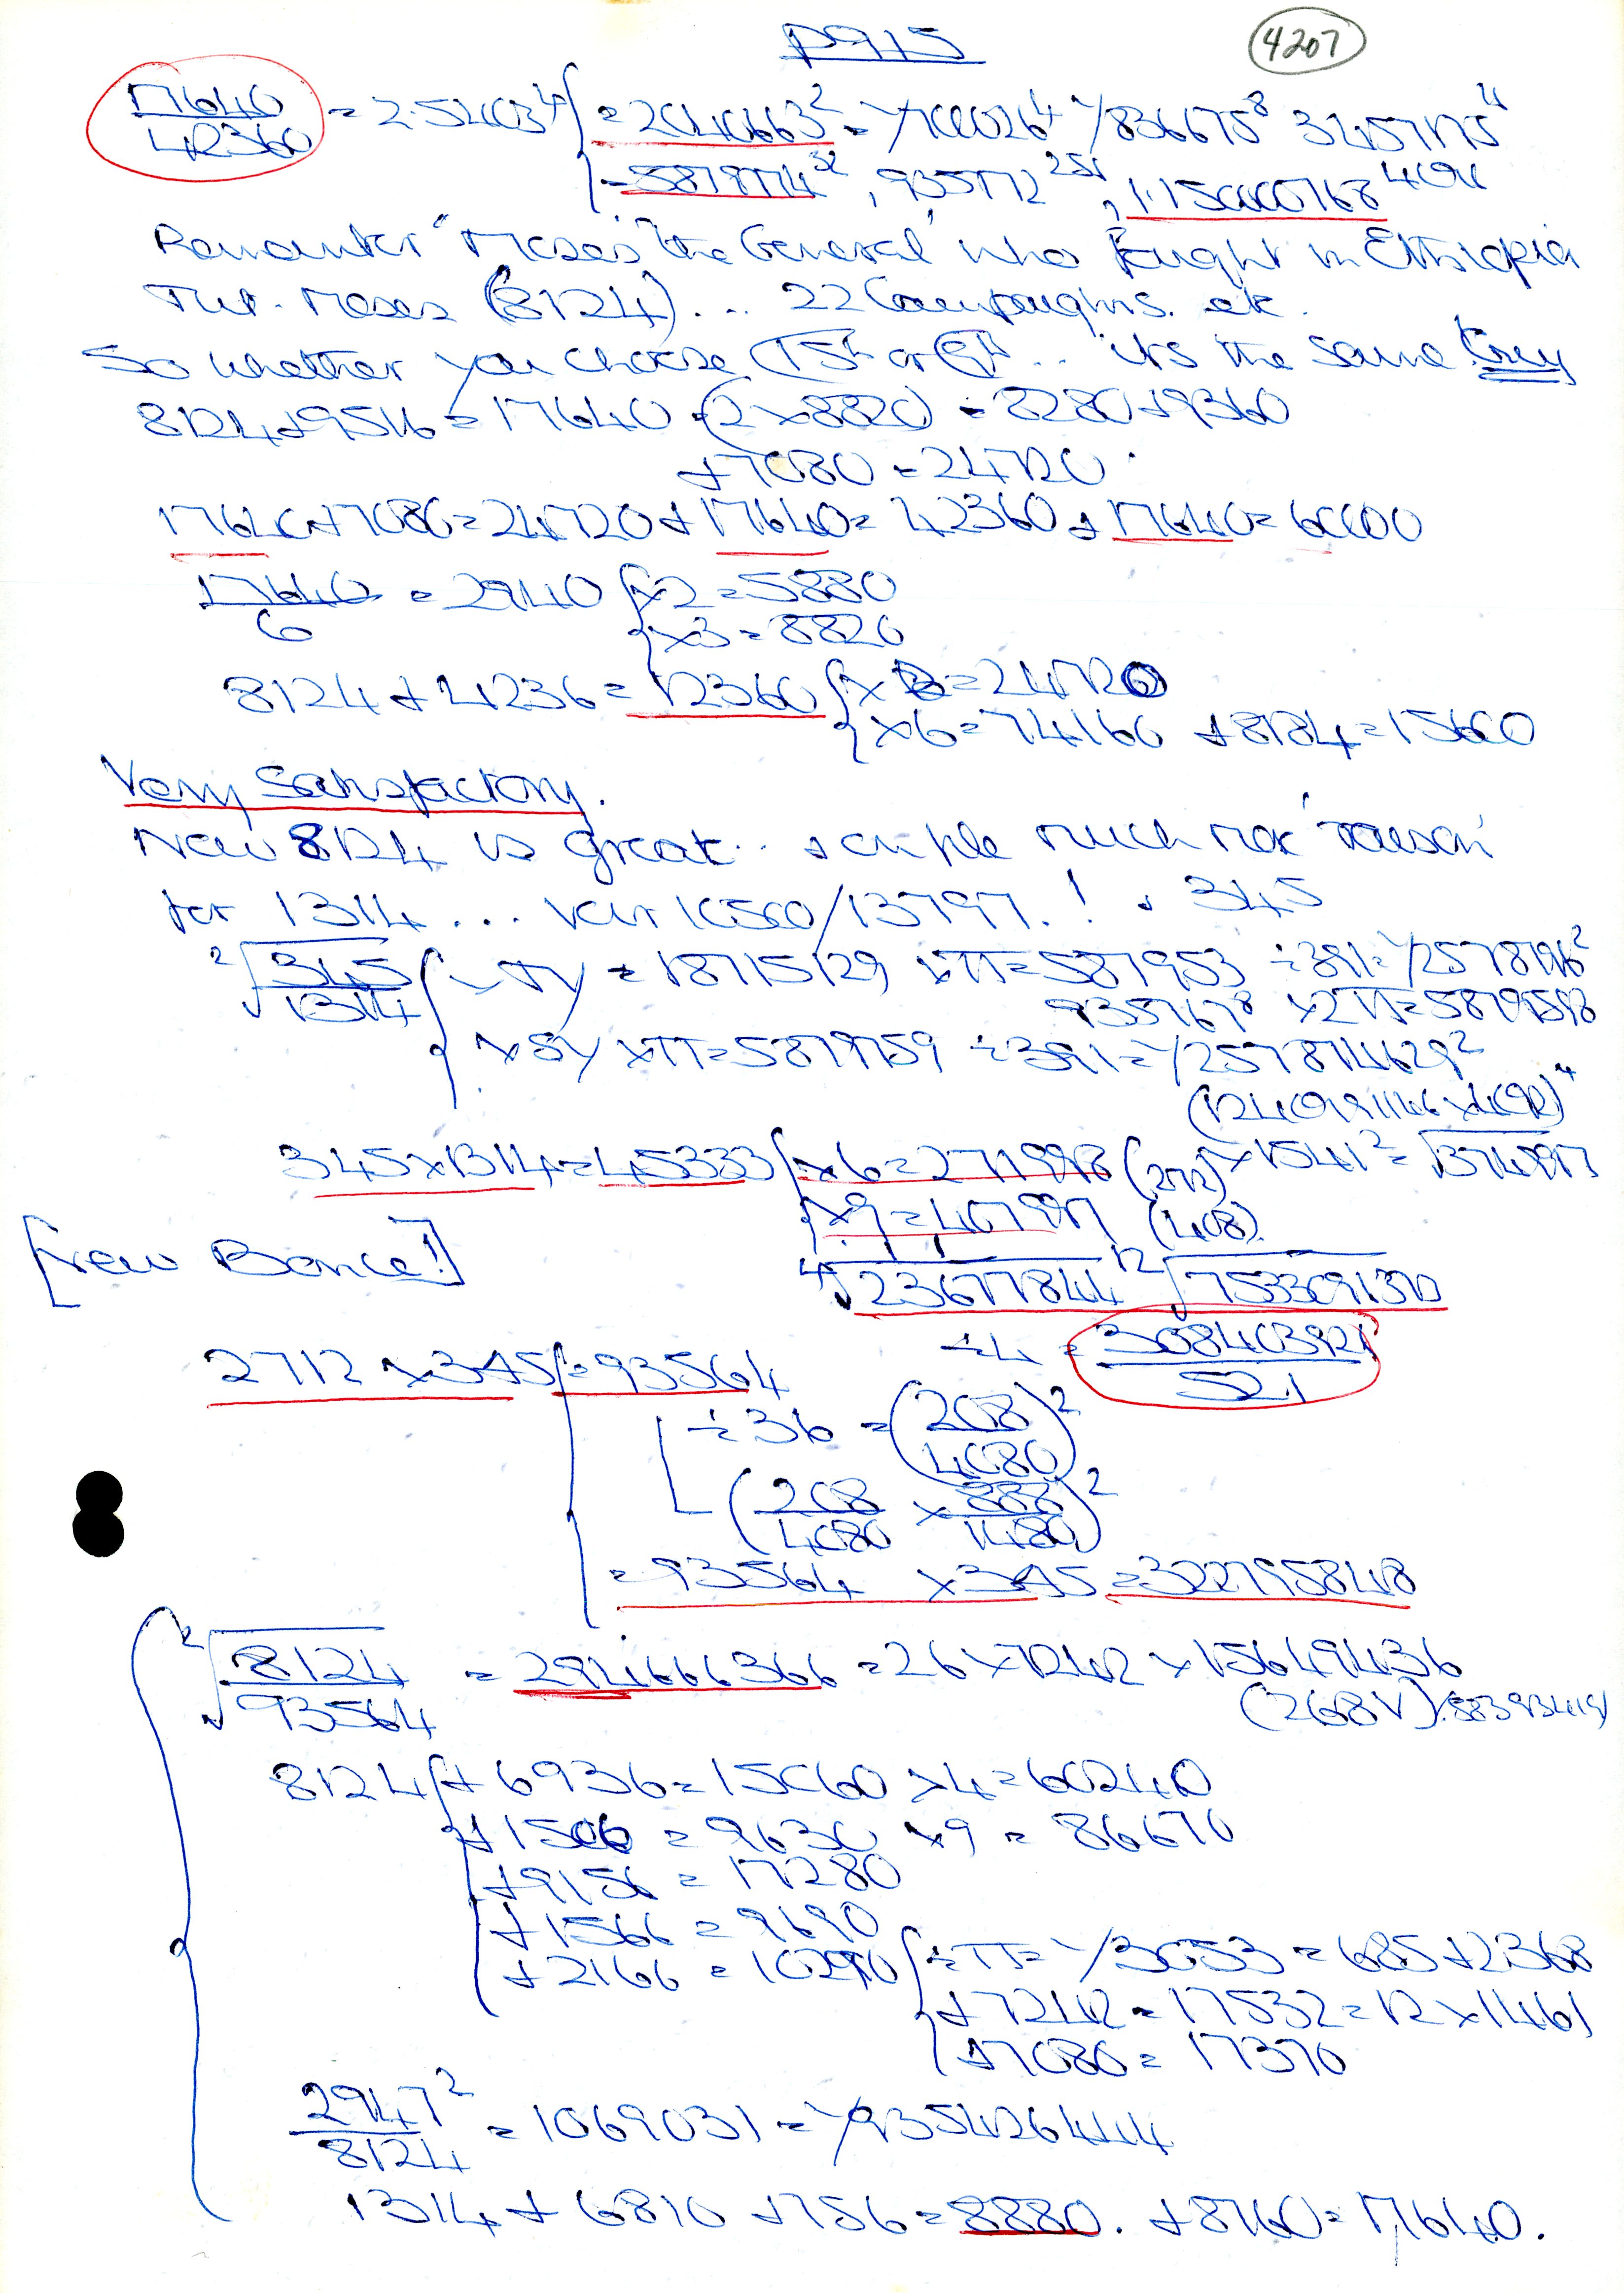 P915
4207
17640/42360 = 2.54034 { = 2040663² = 1/700026⁴ 1/836675⁸ 3457175
= 5878774³² , 935772²⁵⁶ , 1.15000768⁴⁰⁹⁶
Remember "Moses" the General' who fought in Ethiopia
Moses (8124) ... 22 Campaigns. etc.
So whether you choose 15th or 9th .. its the same Guy
8124+9516 = 17640 = (2×8820) = 8280+9360
+7080 = 24720
17640+7080 = 24720+17640 = 42360 + 17640 = 60000
17640/6 = 2940 { ×2 = 5880
×3 = 8820
8124 + 4236 = 12360 { ×2 = 24720
×6 = 74160 + 8184 = 15660
Very Satisfactory.
Now 8124 is great .. much more 'reason'
for 1314 ... 10560/13797. !
345
²√345/1314 { = 18715129 ×π = 587953 ÷391 = 1/2578196²
935767⁸ ×2π = 5879598
×π = 5879759 ÷391 = 1/257874629²
345×1314 = 45333 { ×6 = 271998 (272) ×1541² = √374997
×9 = 407997 (408)
[New Bonce!]
⁴√23677844 ¹²√7533091370
÷4 = 308403921/521
2712 × 345 { = 93564
÷36 = (208/4080)²
(208/4080 × 888/1480)²
= 93564 × 345 = 322795848
²√8124/93564 = 294666366 = 26×7242×15649436
8124 { + 6936 = 15060 ×4 = 60240
+1506 = 9630 ×9 = 86670
+9156 = 17280
+1566 = 9690
+2166 = 10290 { ÷π = 1/3053 = 685+2368
+7242 = 17532 = 12×1461
+7080 = 17370
2947²/8124 = 1069031 = 1/9354264444
1314 + 6810 + 756 = 8880. + 8760 = 17640.